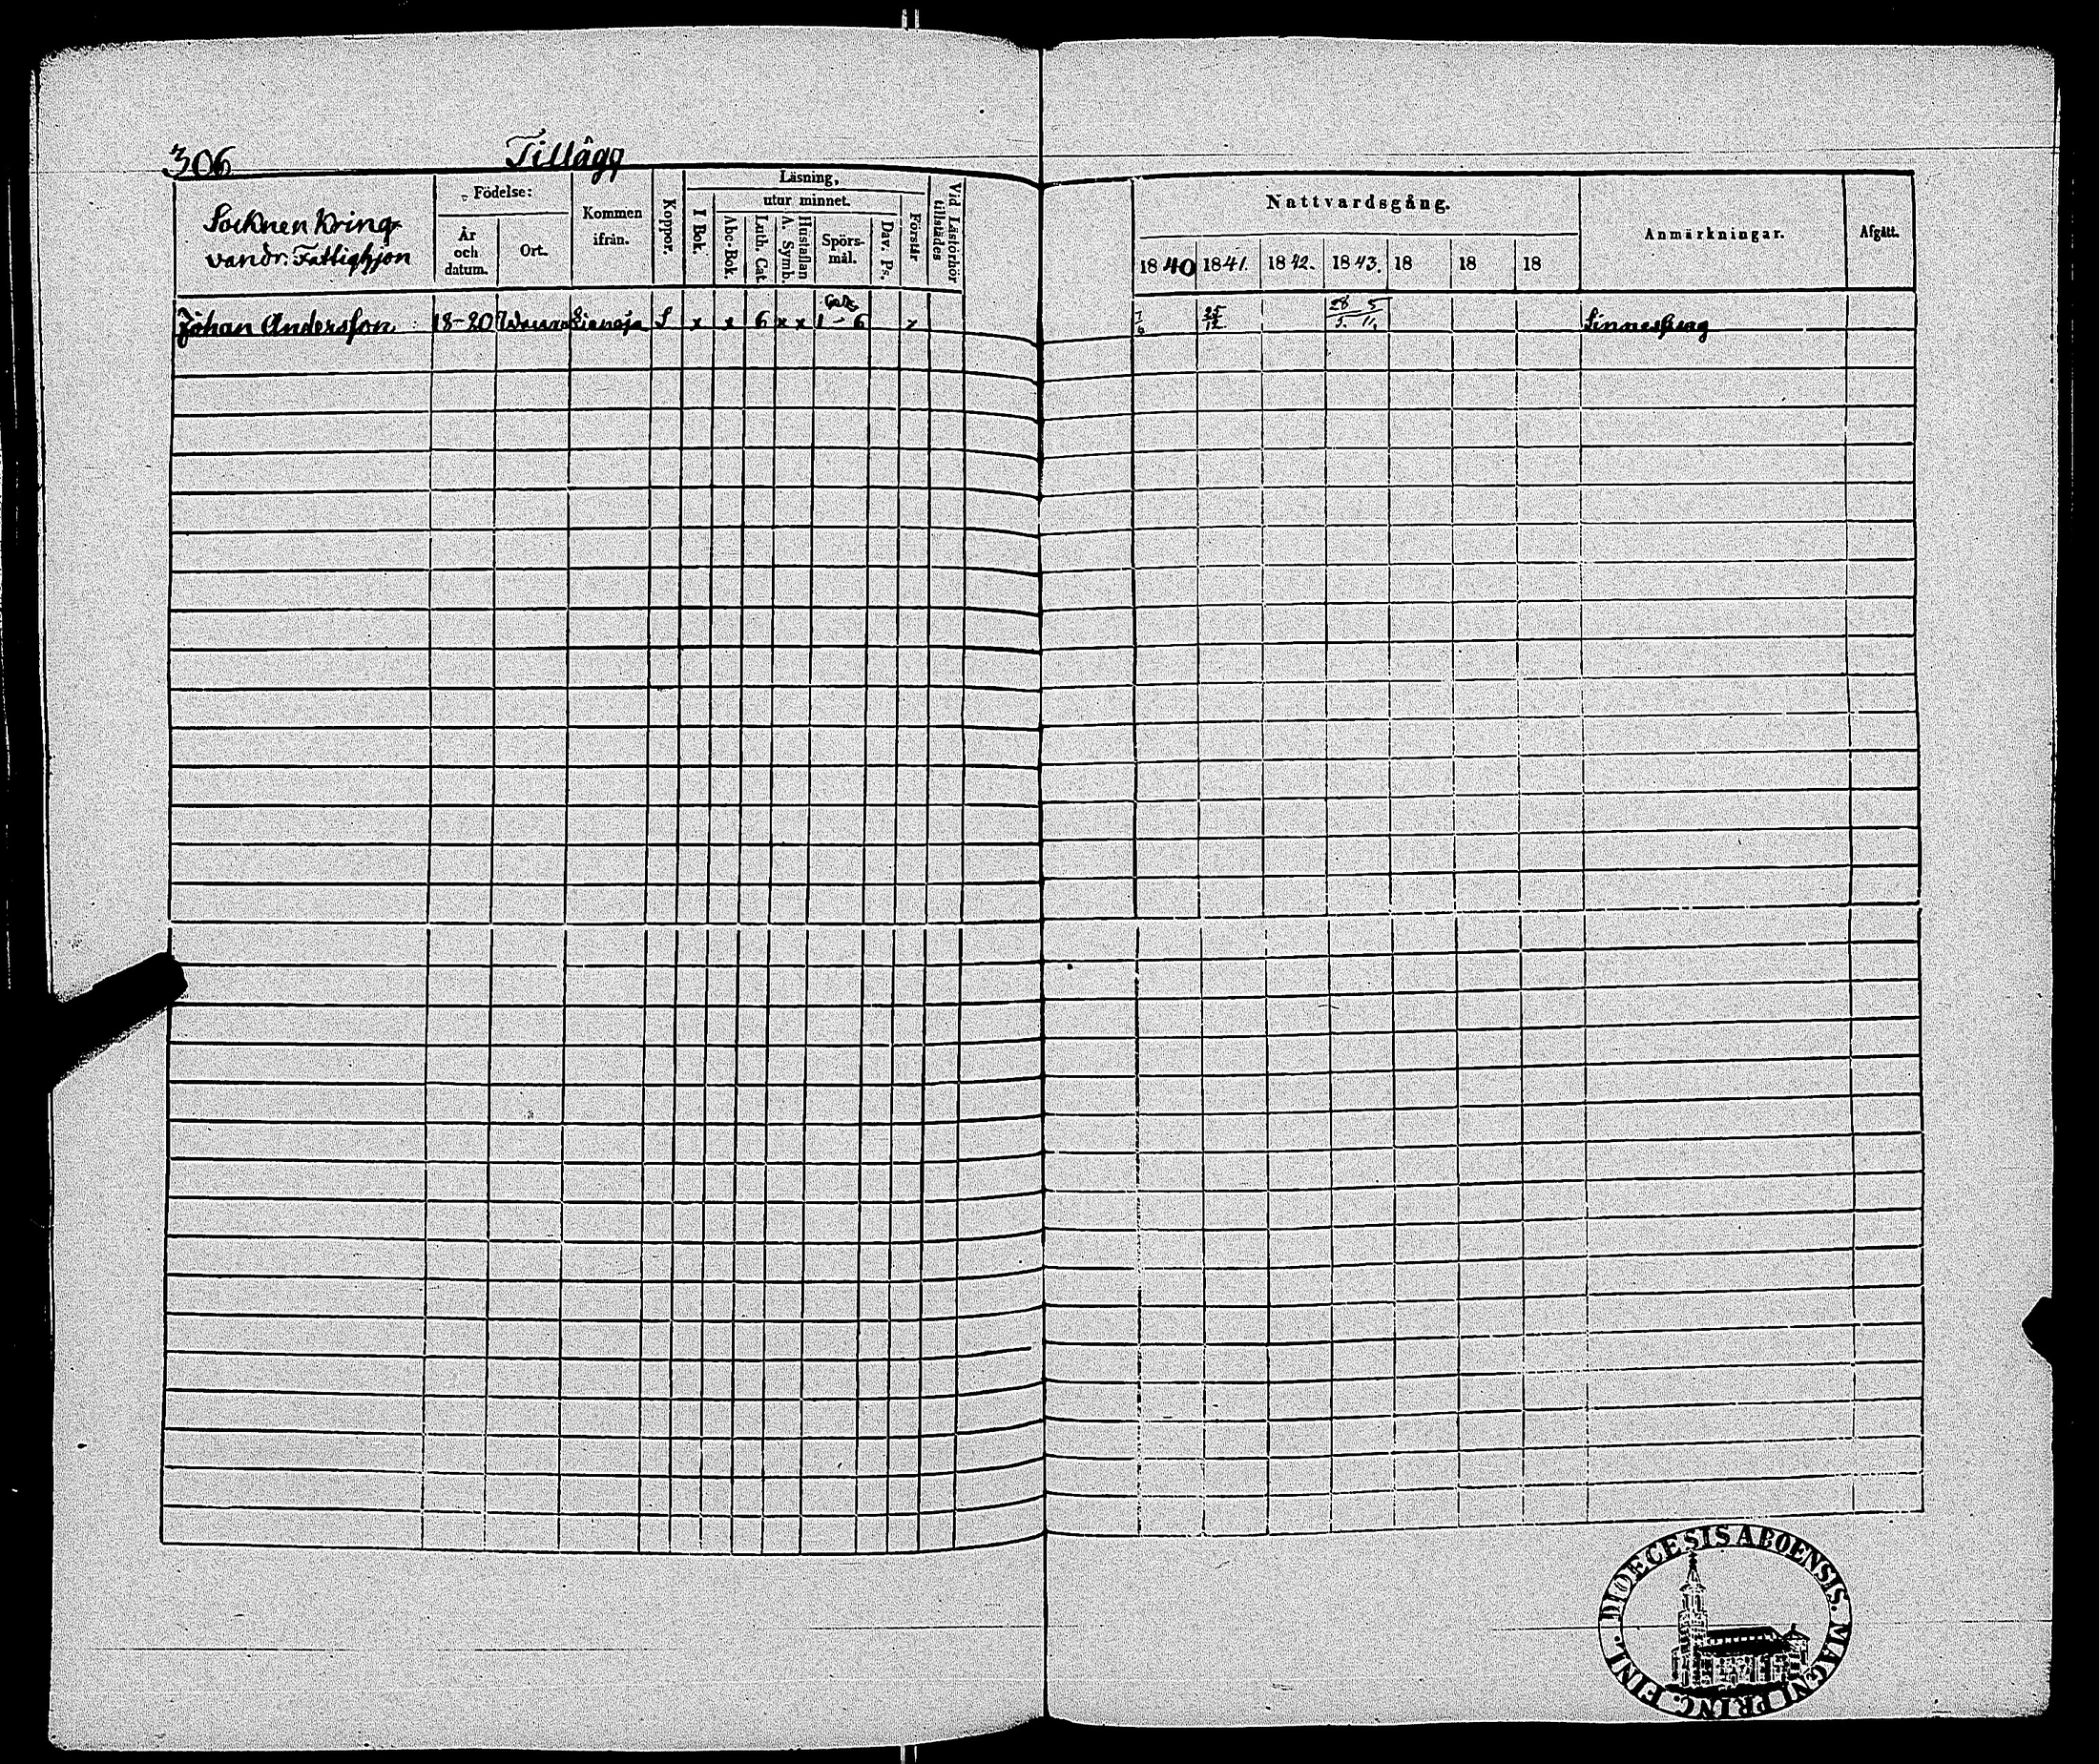 306 Tillägg
Socknen Kring-
vandr. Fattighjon
Födelse:
År
och
datum.
Ort.
Kommen
ifrån.
Koppor.
Läsning,
I Bok.
utur minnet.
Abc-Bok
Luth. Cat.
A. Symb.
Hustaflan
Spörs-
mål.
Dav. Ps.
Förstår
Vid Läsförhör
tillstädes
Nattvardsgång.
1840 1841. 1842. 1843. 18 18 18
Anmärkningar.
Afgått.
Johan Andersson 18-20 S x x 6 x x 1-6 x
DIOECESIS ABOENSIS. MAGNI PRINC. FINL.